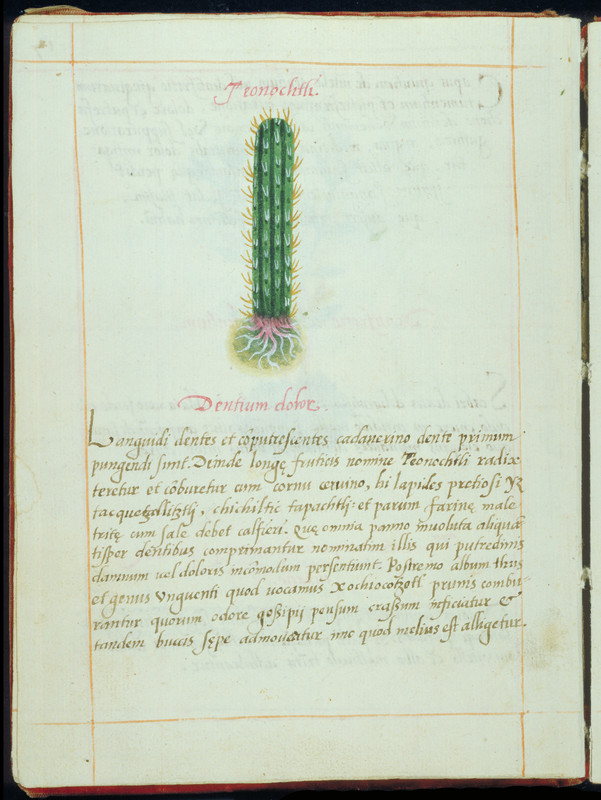 Teonochtli.
Dentium dolor.
Languidi dentes et cōputrescentes cadauerino dente primum
pungendi sunt. Deinde longę fruticis nomine Teonochtli radix
teretur et cōburetur cum cornu ceruino, hi lapides pretiosi Yz
tacquetzalliztli, chichiltic tapachtli: et parum farinę male
tritę cum sale debet calfieri. Quę omnia panno inuoluta aliquā
tisper dentibus comprimantur nominatim illis qui putredinis
damnum uel doloris incōmodum persentiunt. Postremo album thus
et genus Vnguenti quod uocamus Xochiocotzotl prunis combu
rantur quorum odore goßipij pensum craßum inficiatur &
tandem buccis sępe admoueatur imo quod melius est alligetur.